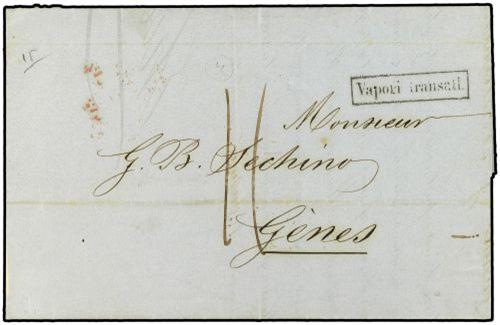 15
Vapori transatl.
Monsieur
G. B. Sechino
Gênes